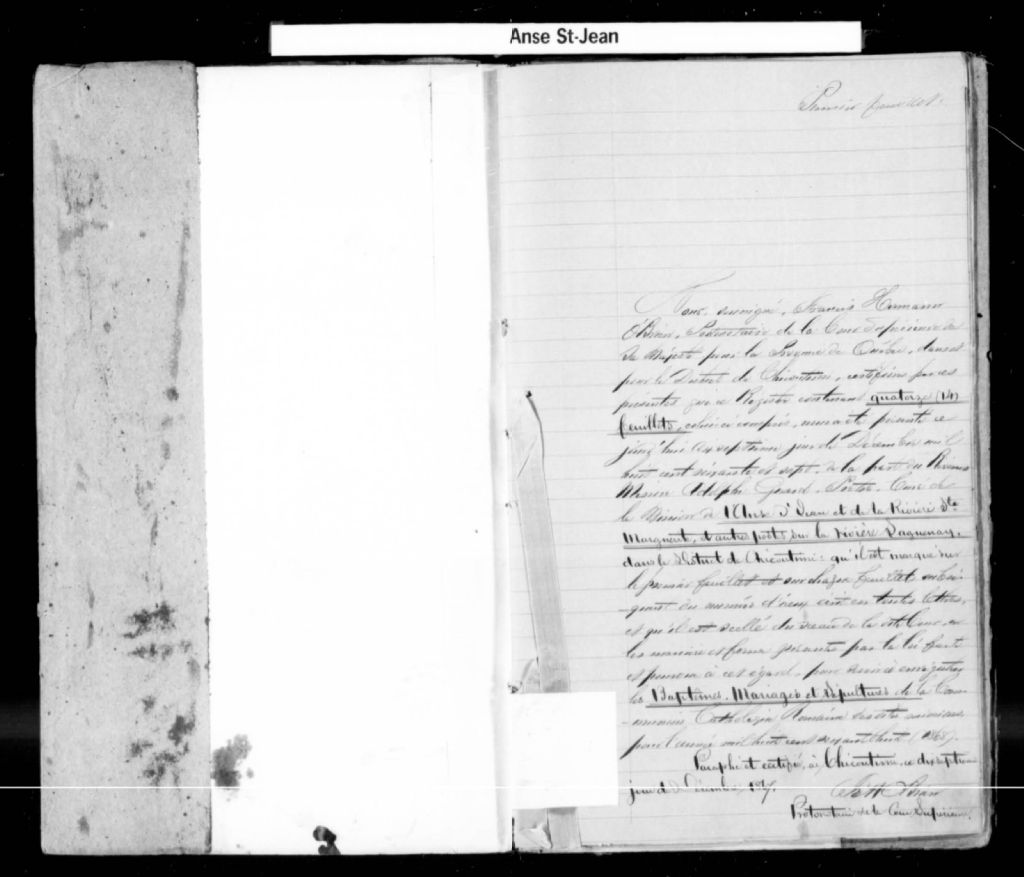 Anse St-Jean
Premier feuillet.
Nous, soussigné, Francis Hermann
O'Brien, Protonotaire de la Cour Supérieure de
Sa Majesté pour la Province de Québec, dans et
pour le District de Chicoutimi, certifions par ces
présentes que ce Registre contenant quatorze (14)
feuillets, celui-ci compris, nous a été présenté ce
jourd'hui dix septième jour de Décembre mil
huit cent soixante et sept, de la part du Révérend
Messire Adolphe Girard, Prêtre, Curé de
la Mission de l'Anse St Jean et de la Rivière Ste
Marguerite, et autres postes sur la rivière Saguenay,
dans le District de Chicoutimi: qu'il est marqué sur
le premier feuillet et sur chaque feuillet subsé-
-quent du numéro d'iceux écrit en toutes lettres,
et qu'il est scellé du sceau de la dite Cour, en
la manière et forme prescrites par la loi faite
et pourvue à cet égard, pour servir à enregistrer
les Baptêmes, Mariages et Sépultures de la Com-
-munion Catholique Romaine des dites missions
pour l'année mil huit cent soixante huit (1868).
Paraphé et certifié, à Chicoutimi, ce dix septième
jour de Décembre, 1867.
O'Brien
Protonotaire de la Cour Supérieure.